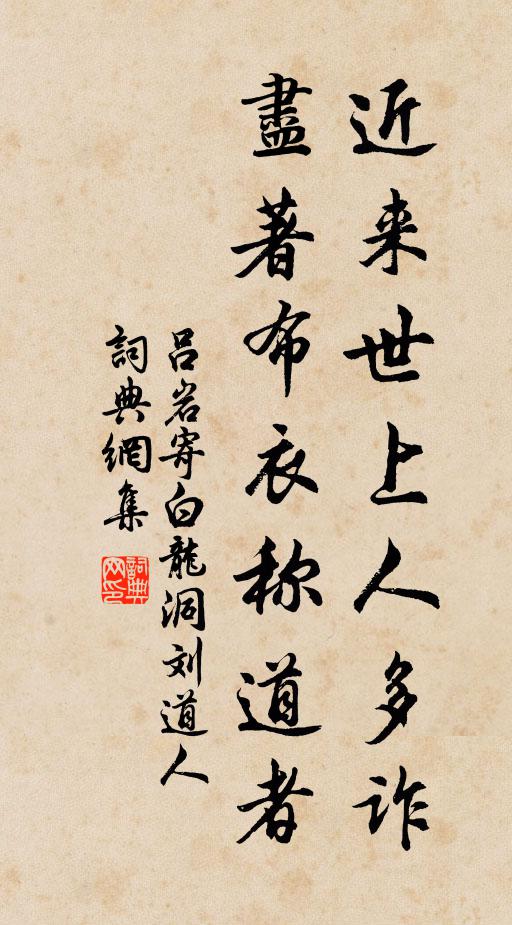 近来世上人多诈
盡著布衣称道者
吕岩寄白龍洞刘道人
詞典網集
詞典网印